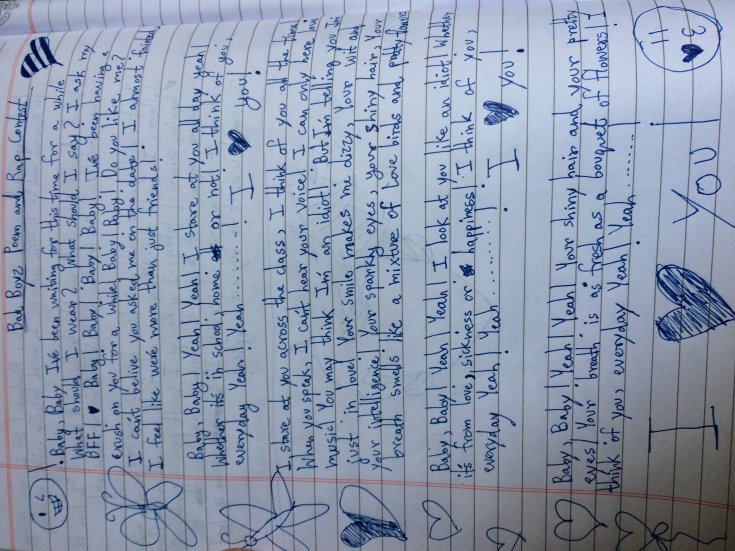 Bad Boyz Poem and Rap Contest
Baby, Baby I've been waiting for this time for a while
What should I wear? What should I say? I ask my
BFF! Baby! Baby! Baby! Baby! Baby! I've been having a
crush on you for a while Baby Baby! Do you like me?
I can't belive you asked me on the date! I almost fainted!
I feel like we're more than just friends!
Baby, Baby! Yeah! Yeah! I stare at you all day yeah!
Whether it's in school, home or not! I think of you,
everyday Yeah! Yeah .......... I you!
I stare at you across the class, I think of you all the time!
When you speak, I can't hear your voice! I can only here love
music! You may think I'm an idiot! But I'm telling you I'm
just in love! Your smile makes me dizzy, your wit and
your intelligence! Your sparkly eyes, your shiny hair, your
breath smells like a mixture of love birds and pretty
Baby, Baby! Yeah! Yeah! I look at you like an idiot! Whether
it's from love, sickness or happiness! I think of you,
everyday Yeah! Yeah .......! I you!
Baby, Baby! Yeah! Yeah! Your shiny hair and your pretty
eyes! Your breath is as fresh as a bouquet of flowers! I
think of you, everyday Yeah! Yeah .......
I YOU!